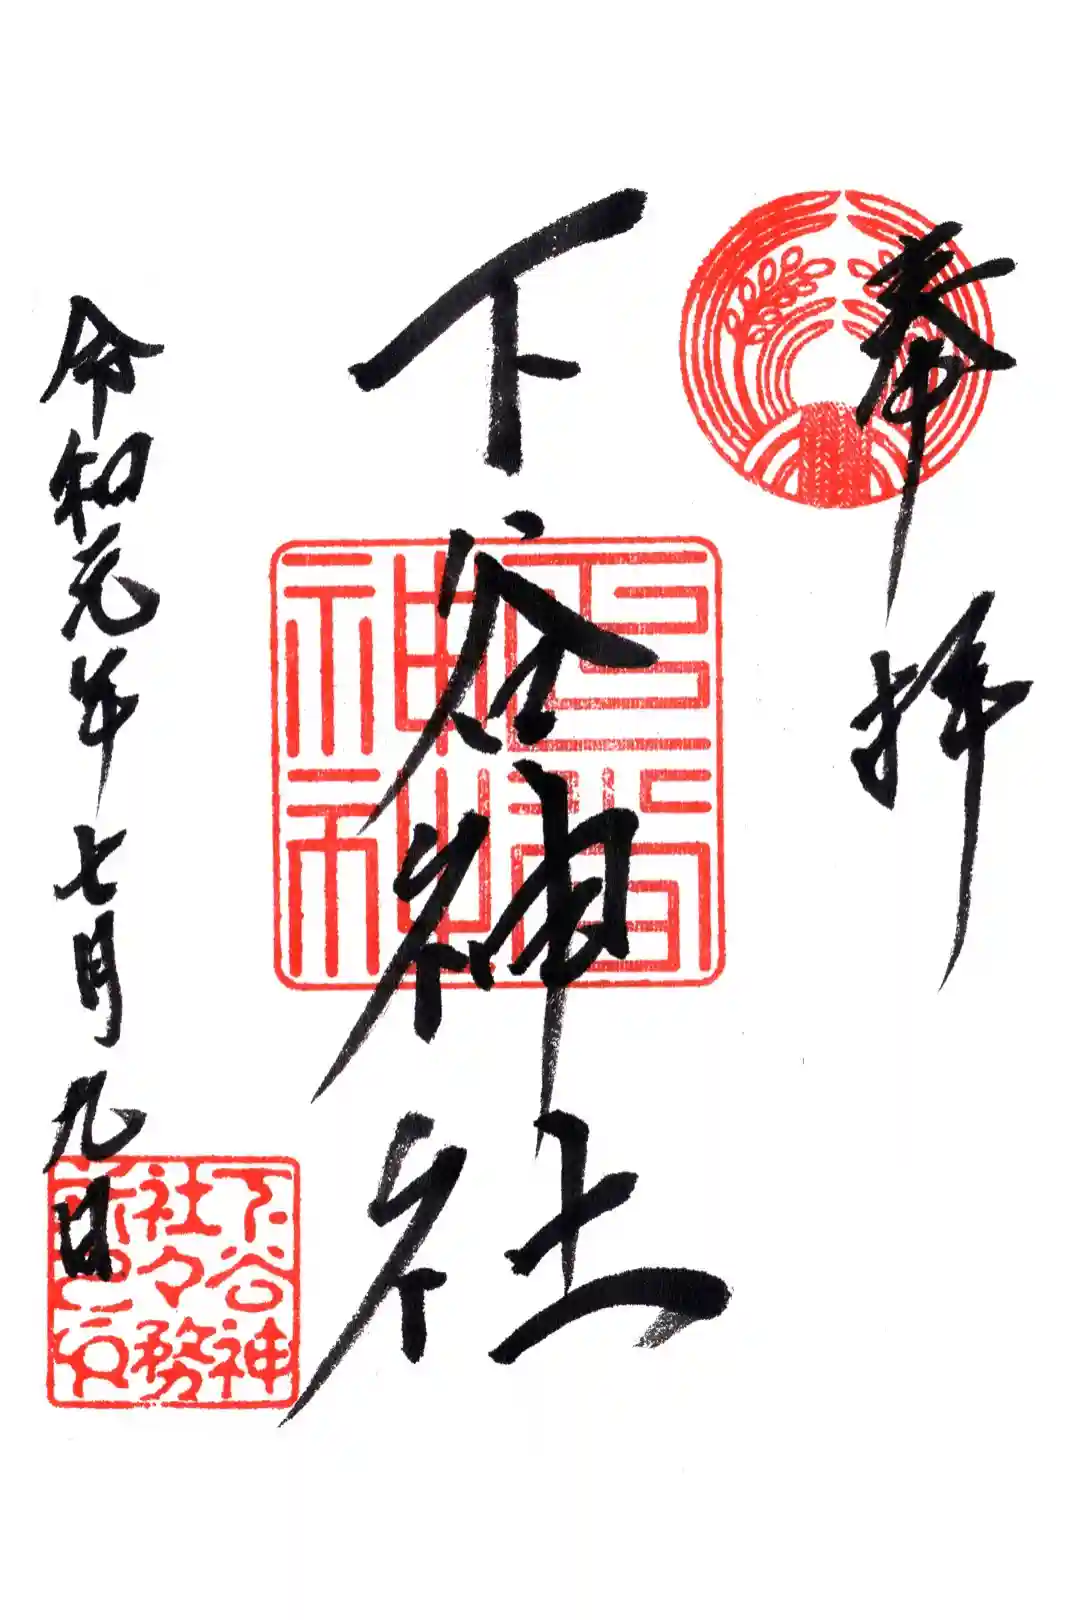 奉拝
下谷神社
令和元年七月九日
下谷神
社々務
所之印